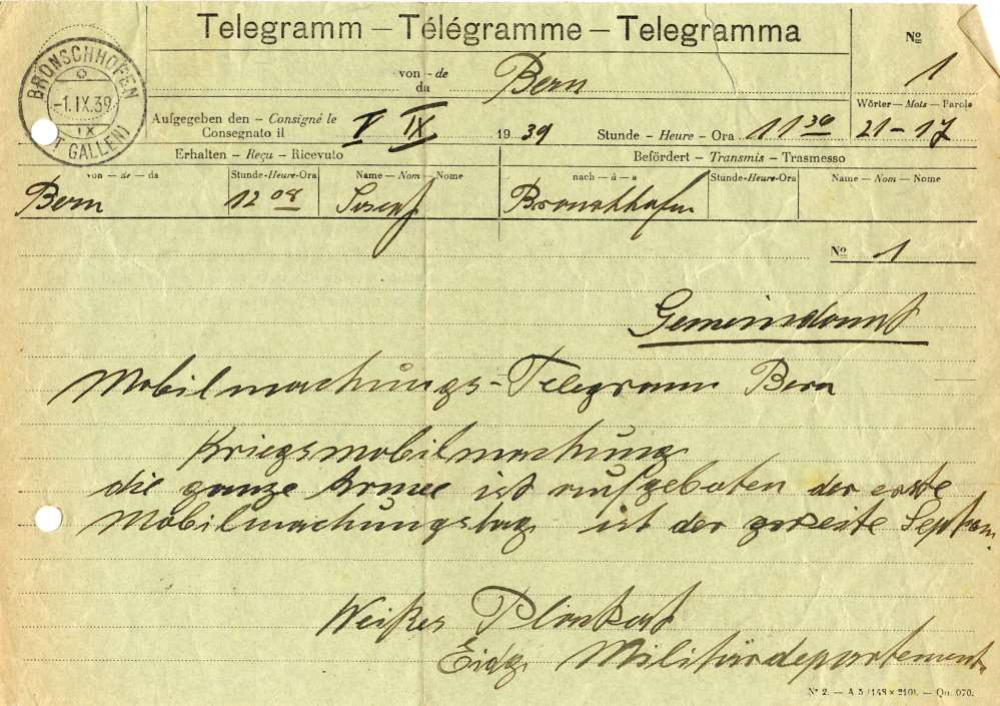 Telegramm – Télégramme – Telegramma
BRONSCHHOFEN
-1.IX.39
IX
(ST GALLEN)
Nº
1
von – de
da
Bern
Wörter – Mots – Parole
21-17
Aufgegeben den – Consigné le
Consegnato il
IX
1939
Stunde – Heure – Ora
11 30
Erhalten – Reçu – Ricevuto
Befördert – Transmis – Trasmesso
von – de – da
Stunde-Heure-Ora
Name – Nom – Nome
nach – à – a
Stunde-Heure-Ora
Name – Nom – Nome
Bern
12 08
Bronschhofen
Nº 1
Gemeindeamt
Mobilmachungs-Telegramm Bern
Kriegsmobilmachung
die ganze Armee ist aufgeboten der erste
Mobilmachungstag ist der zweite Septem.
Weißes Plakat
Eidg. Militärdepartement.
Nº 2. – A 5 (148 × 210). – Qu. 070.